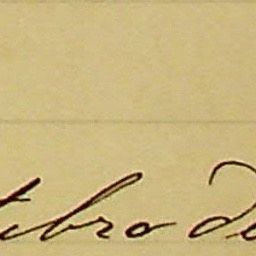 tubro de